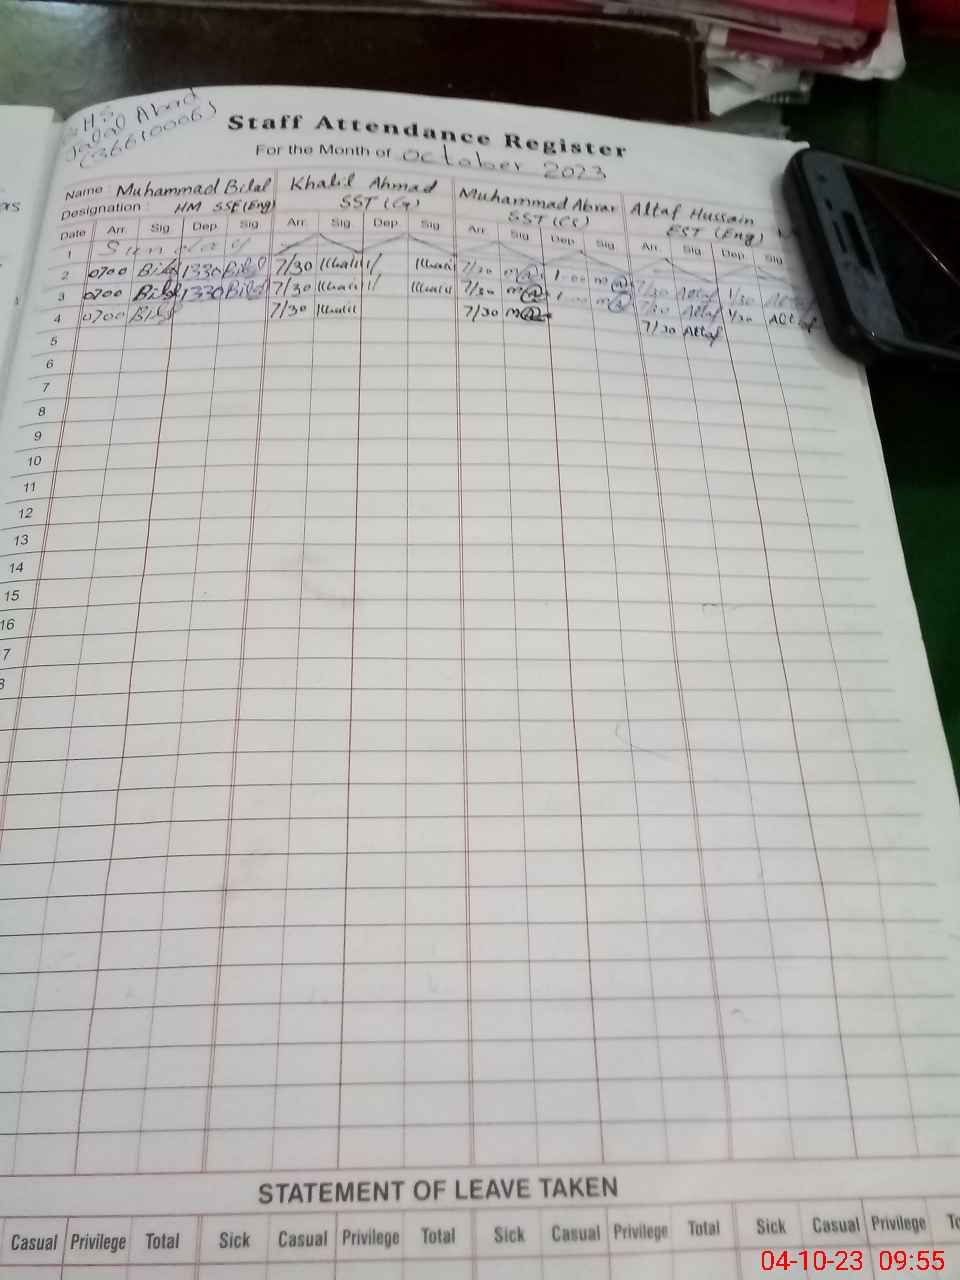 HS
Jalal Abad
(36610006)
Staff Attendance Register
For the Month of October 2023
Name : Muhammad Bilal Khalil Ahmad Muhammad Abrar Altaf Hussain
Designation : HM SSE (Eng) SST (G) SST (CS) EST (Eng)
Date Arr. Sig Dep. Sig Arr. Sig Dep Sig Arr. Sig Dep. Sig Arr. Sig Dep. Sig
1 Sunday
2 0700 Bilal 1330 Bilal 7/30 Khalil 1/ Khalil 7/30 1:00 7/30 Altaf 1/30 Altaf
3 0700 Bilal 1330 Bilal 7/30 Khalil 1/ Khalil 7/30 1:00 7/30 Altaf 1/30 Altaf
4 0700 Bilal 7/30 Khalil 7/30 7/30 Altaf
5
6
7
8
9
10
11
12
13
14
15
16
7
STATEMENT OF LEAVE TAKEN
Casual Privilege Total Sick Casual Privilege Total Sick Casual Privilege Total Sick Casual Privilege
04-10-23 09:55